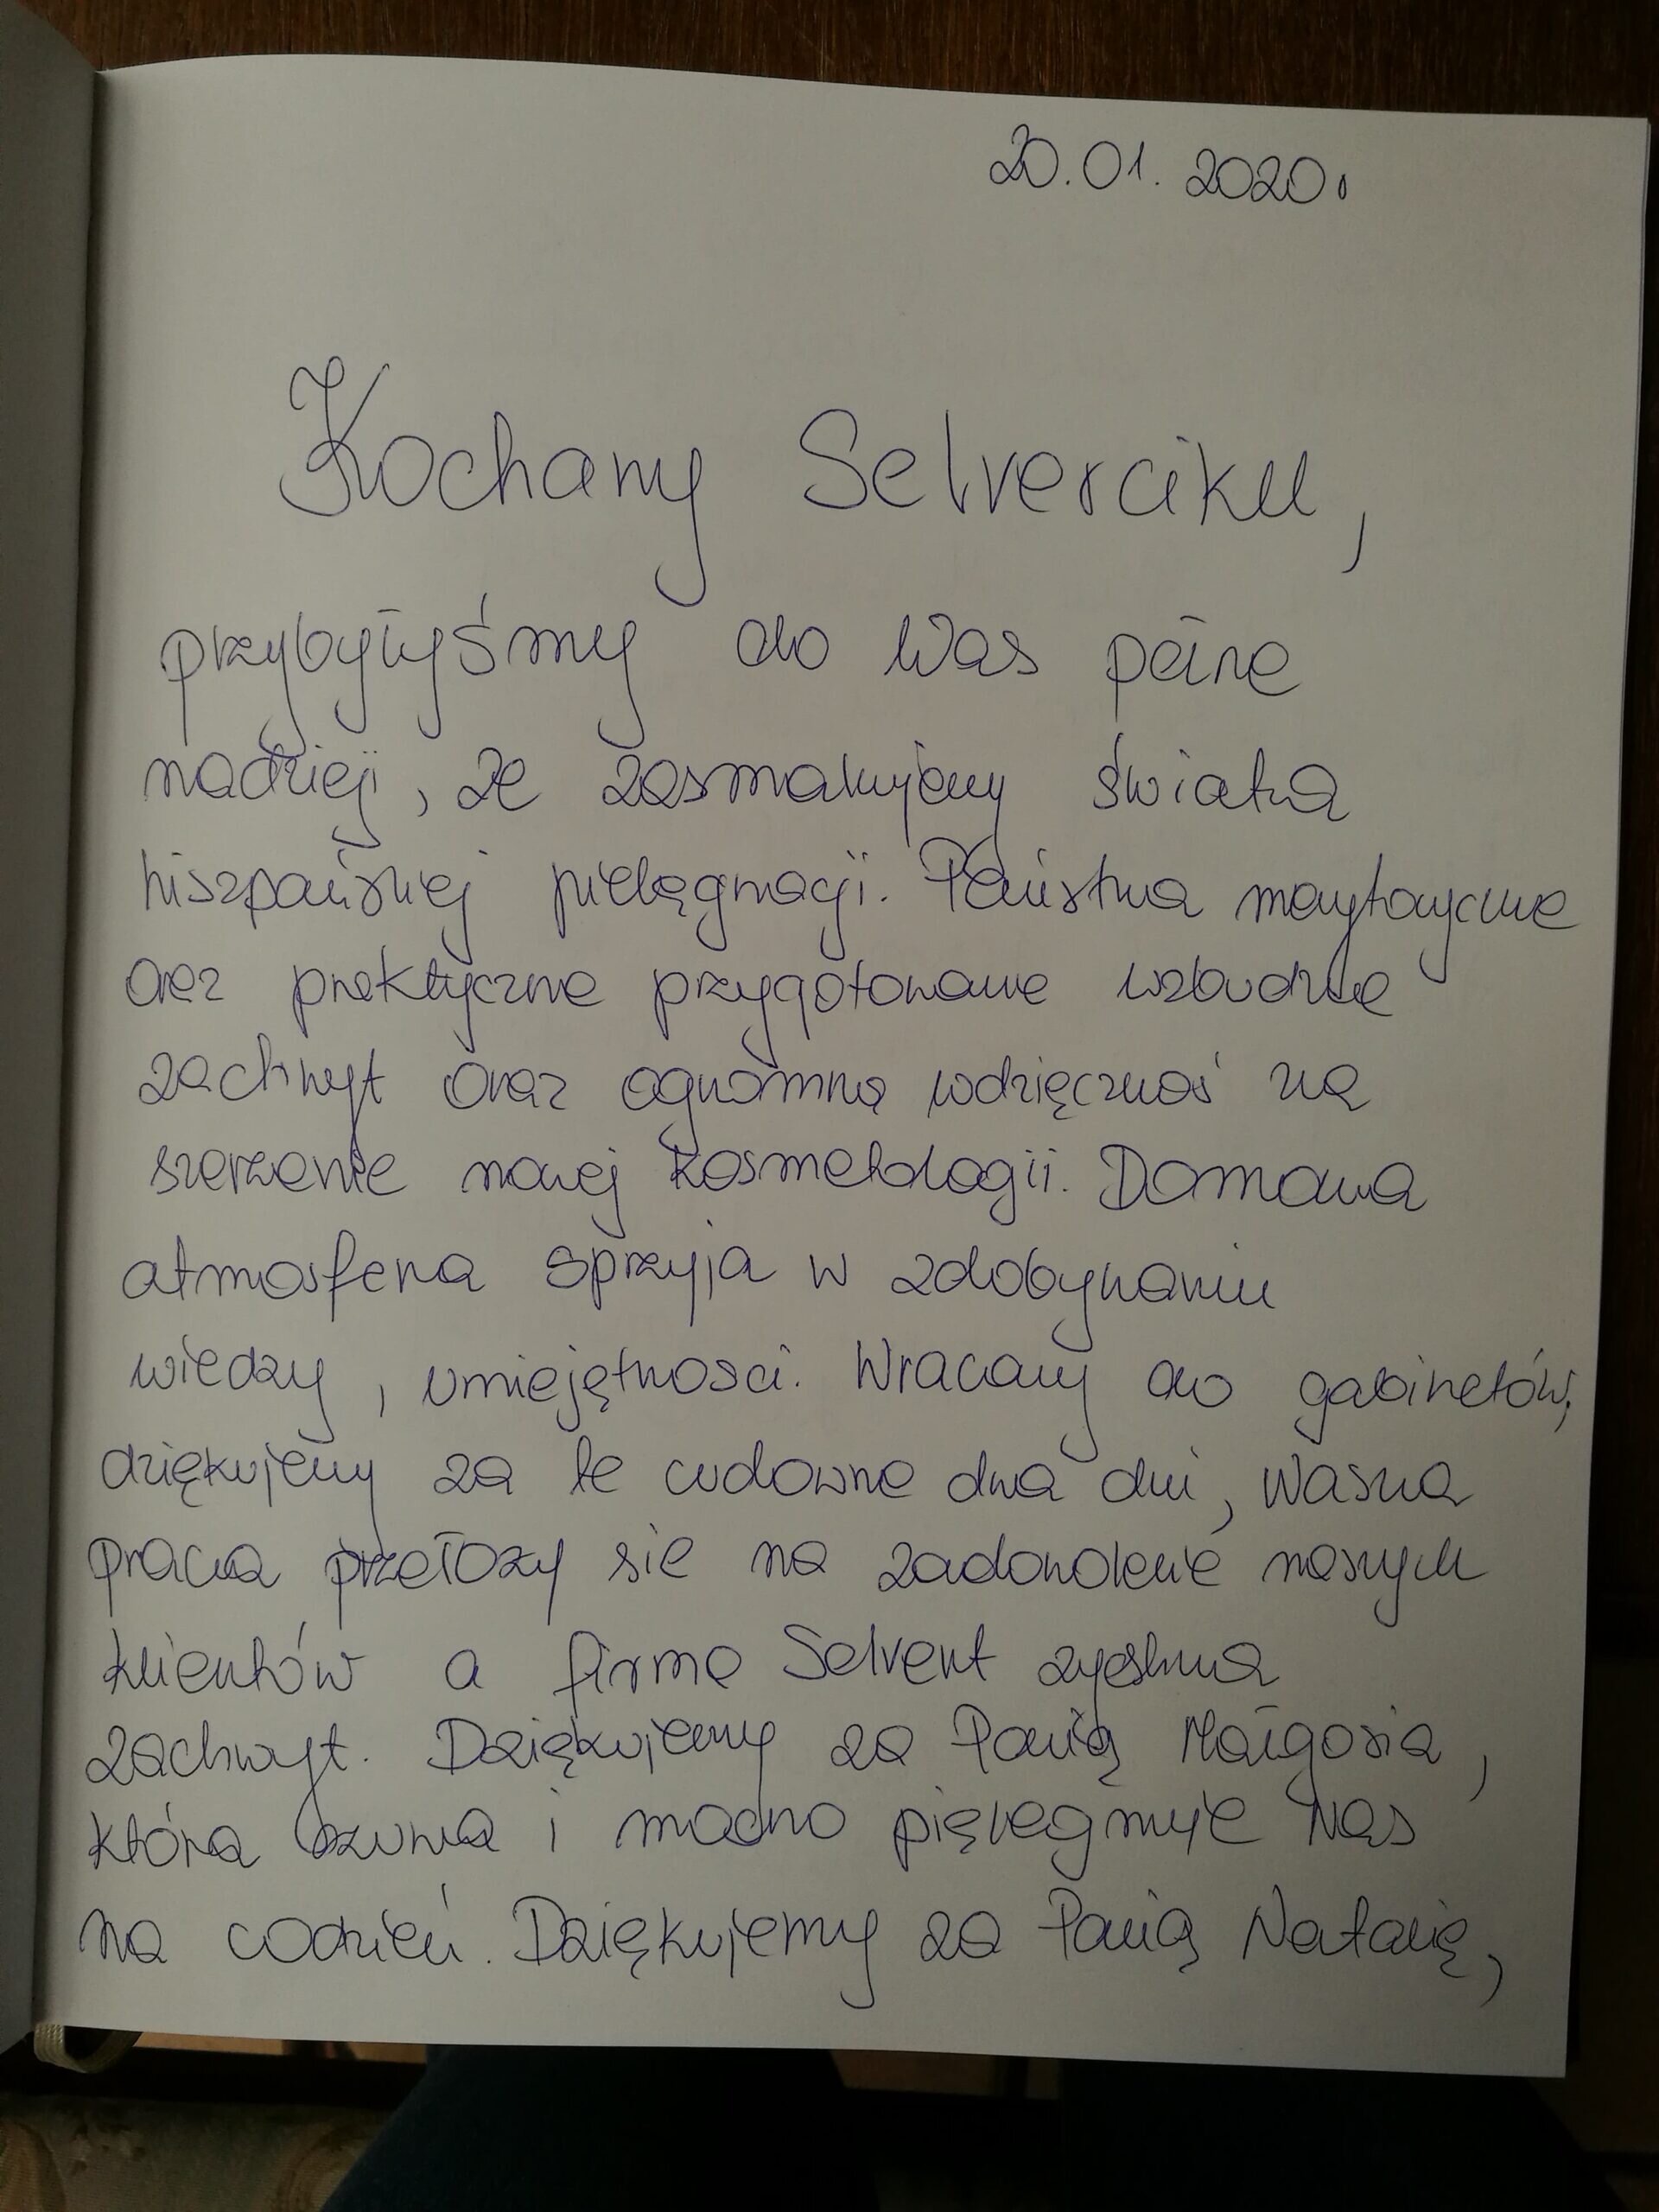 20.01.2020r
Kochany Selverciku,
przybyłyśmy do Was pełne
nadzieji, że zasmakujemy świata
hiszpańskiej pielęgnacji. Państwa merytoryczne
oraz praktyczne przygotowanie wzbudza
zachwyt oraz ogromną wdzięcznoś za
szerzenie nowej kosmetologii. Domowa
atmosfera sprzyja w zdobywaniu
wiedzy, umiejętnosci. Wracamy do gabinetów,
dziękujemy za te cudowne dwa dni, Wasza
praca przełoży sie na zadowolenie naszych
klientów a firma Selvert zyska
zachwyt. Dziękujemy za Panią Małgosia,
która czuwa i mocno pielęgnuje Nas
na codzień. Dziękujemy za Panią Natalię,